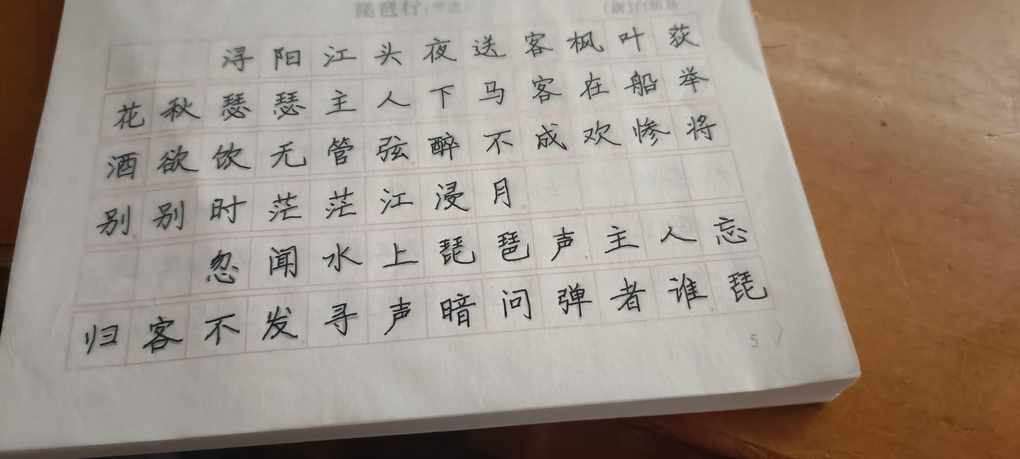 琵琶行
浔阳江头夜送客枫叶荻
花秋瑟瑟主人下马客在船举
酒欲饮无管弦醉不成欢惨将
别别时茫茫江浸月
忽闻水上琵琶声主人忘
归客不发寻声暗问弹者谁琵
5